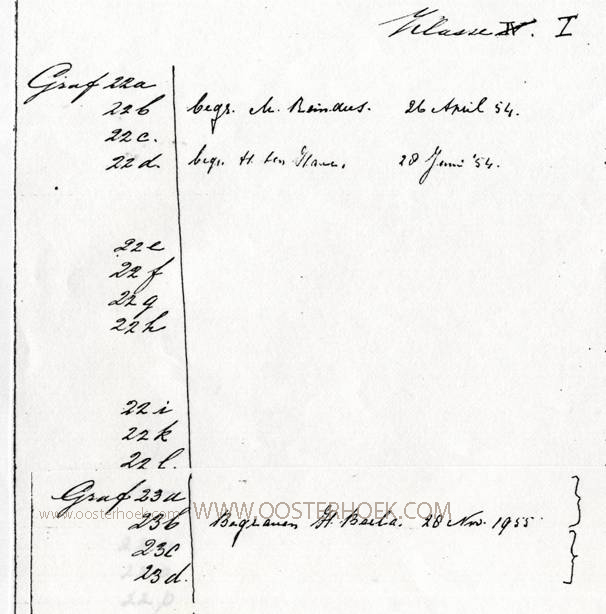 Klasse IV. I
Graf 22a
22b begr. M. Reindus. 26 April 54.
22c.
22d. begr. H. ten 28 Juni '54.
22e
22f
22g
22h
22i
22k
22l.
Graf 23a
www.oosterhoek.com WWW.OOSTERHOEK.COM
23b Begraven H. 28 Nov. 1955
23c
23d.